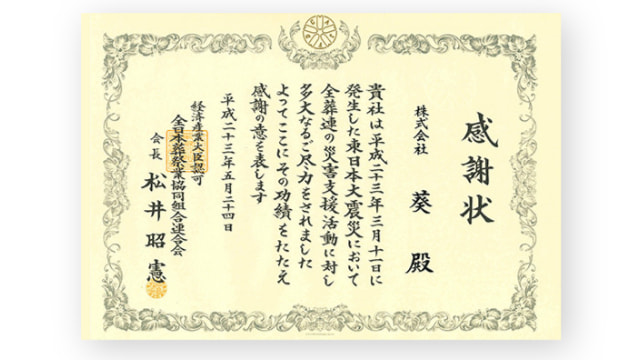 感謝状
株式会社 葵 殿
貴社は平成二十三年三月十一日に
発生した東日本大震災において
全葬連の災害支援活動に対し
多大なるご尽力をされました
よってここにその功績をたたえ
感謝の意を表します
平成二十三年五月二十四日
経済産業大臣認可
全日本葬祭業協同組合連合会
会長 松井昭憲